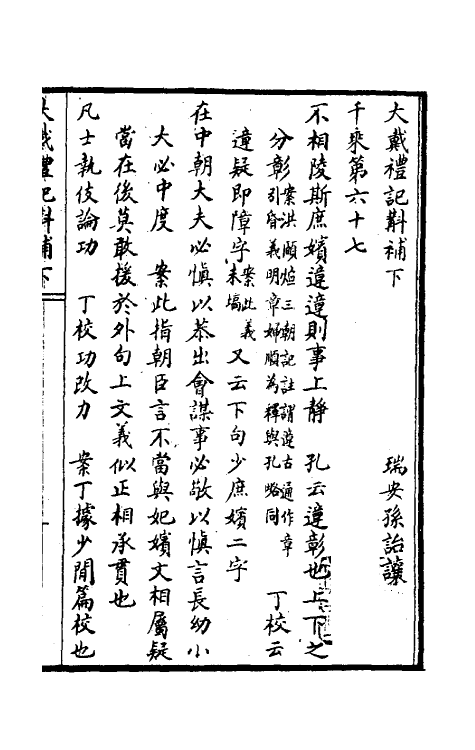 大戴禮記斠補下　瑞安孫詒讓
千乘第六十七
不相陵斯庶嬪違違則事上靜　孔云違彰也上下之
分彰案洪頤煊三朝記註謂違古通作章引昏義明章婦順為釋與孔略同　丁校云
違疑即障字案此義未塙　又云下句少庶嬪二字
在中朝大夫必愼以恭出會謀事必敬以愼言長幼小
大必中度　案此指朝臣言不當與妃嬪文相屬疑
當在後莫敢援於外句上文義似正相承貫也
凡士執伎論功　丁校功改力　案丁據少閒篇校也
大戴禮記斠補下